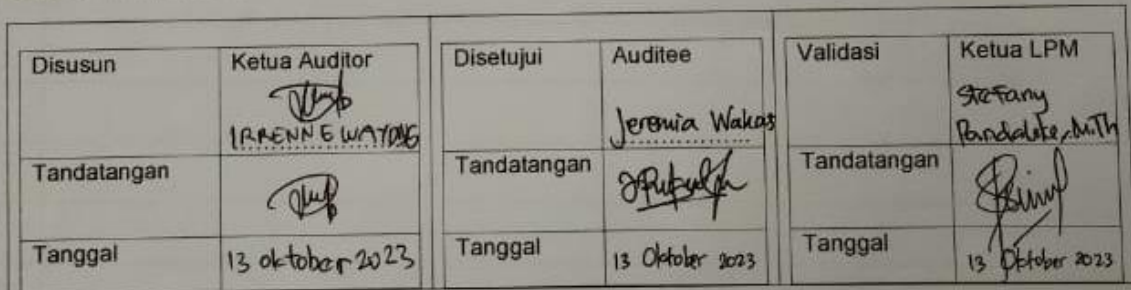 Disusun
Ketua Auditor
IRRENNE WAYONG
Tandatangan
Tanggal
13 oktober 2023
Disetujui
Auditee
Jeremia Wakas
Tandatangan
Tanggal
13 Oktober 2023
Validasi
Ketua LPM
Stefany
Pandaleke, M.Th
Tandatangan
Tanggal
13 Oktober 2023